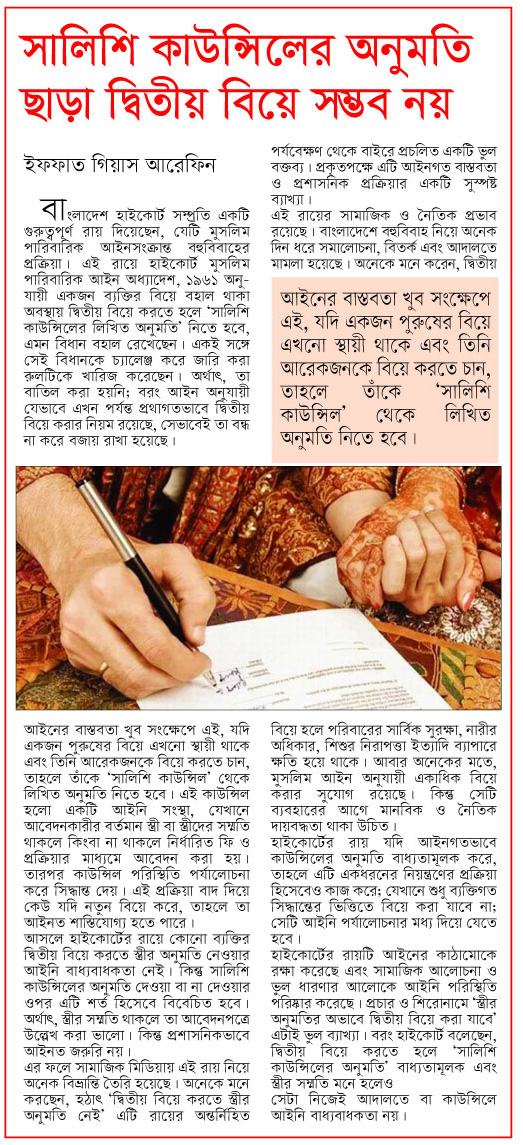 সালিশি কাউন্সিলের অনুমতি
ছাড়া দ্বিতীয় বিয়ে সম্ভব নয়
ইফফাত গিয়াস আরেফিন
বাংলাদেশ হাইকোর্ট সম্প্রতি একটি
গুরুত্বপূর্ণ রায় দিয়েছেন, যেটি মুসলিম
পারিবারিক আইনসংক্রান্ত বহুবিবাহের
প্রক্রিয়া। এই রায়ে হাইকোর্ট মুসলিম
পারিবারিক আইন অধ্যাদেশ, ১৯৬১ অনু-
যায়ী একজন ব্যক্তির বিয়ে বহাল থাকা
অবস্থায় দ্বিতীয় বিয়ে করতে হলে ‘সালিশি
কাউন্সিলের লিখিত অনুমতি’ নিতে হবে,
এমন বিধান বহাল রেখেছেন। একই সঙ্গে
সেই বিধানকে চ্যালেঞ্জ করে জারি করা
রুলটিকে খারিজ করেছেন। অর্থাৎ, তা
বাতিল করা হয়নি; বরং আইন অনুযায়ী
যেভাবে এখন পর্যন্ত প্রথাগতভাবে দ্বিতীয়
বিয়ে করার নিয়ম রয়েছে, সেভাবেই তা বন্ধ
না করে বজায় রাখা হয়েছে।
আইনের বাস্তবতা খুব সংক্ষেপে এই, যদি
একজন পুরুষের বিয়ে এখনো স্থায়ী থাকে
এবং তিনি আরেকজনকে বিয়ে করতে চান,
তাহলে তাঁকে ‘সালিশি কাউন্সিল’ থেকে
লিখিত অনুমতি নিতে হবে। এই কাউন্সিল
হলো একটি আইনি সংস্থা, যেখানে
আবেদনকারীর বর্তমান স্ত্রী বা স্ত্রীদের সম্মতি
থাকলে কিংবা না থাকলে নির্ধারিত ফি ও
প্রক্রিয়ার মাধ্যমে আবেদন করা হয়।
তারপর কাউন্সিল পরিস্থিতি পর্যালোচনা
করে সিদ্ধান্ত দেয়। এই প্রক্রিয়া বাদ দিয়ে
কেউ যদি নতুন বিয়ে করে, তাহলে তা
আইনত শাস্তিযোগ্য হতে পারে।
আসলে হাইকোর্টের রায়ে কোনো ব্যক্তির
দ্বিতীয় বিয়ে করতে স্ত্রীর অনুমতি নেওয়ার
আইনি বাধ্যবাধকতা নেই। কিন্তু সালিশি
কাউন্সিলের অনুমতি দেওয়া বা না দেওয়ার
ওপর এটি শর্ত হিসেবে বিবেচিত হবে।
অর্থাৎ, স্ত্রীর সম্মতি থাকলে তা আবেদনপত্রে
উল্লেখ করা ভালো। কিন্তু প্রশাসনিকভাবে
আইনত জরুরি নয়।
এর ফলে সামাজিক মিডিয়ায় এই রায় নিয়ে
অনেক বিভ্রান্তি তৈরি হয়েছে। অনেকে মনে
করছেন, হঠাৎ ‘দ্বিতীয় বিয়ে করতে স্ত্রীর
অনুমতি নেই’ এটি রায়ের অন্তর্নিহিত
পর্যবেক্ষণ থেকে বাইরে প্রচলিত একটি ভুল
বক্তব্য। প্রকৃতপক্ষে এটি আইনগত বাস্তবতা
ও প্রশাসনিক প্রক্রিয়ার একটি সুস্পষ্ট
ব্যাখ্যা।
এই রায়ের সামাজিক ও নৈতিক প্রভাব
রয়েছে। বাংলাদেশে বহুবিবাহ নিয়ে অনেক
দিন ধরে সমালোচনা, বিতর্ক এবং আদালতে
মামলা হয়েছে। অনেকে মনে করেন, দ্বিতীয়
আইনের বাস্তবতা খুব সংক্ষেপে
এই, যদি একজন পুরুষের বিয়ে
এখনো স্থায়ী থাকে এবং তিনি
আরেকজনকে বিয়ে করতে চান,
তাহলে তাঁকে ‘সালিশি
কাউন্সিল’ থেকে লিখিত
অনুমতি নিতে হবে।
বিয়ে হলে পরিবারের সার্বিক সুরক্ষা, নারীর
অধিকার, শিশুর নিরাপত্তা ইত্যাদি ব্যাপারে
ক্ষতি হয়ে থাকে। আবার অনেকের মতে,
মুসলিম আইন অনুযায়ী একাধিক বিয়ে
করার সুযোগ রয়েছে। কিন্তু সেটি
ব্যবহারের আগে মানবিক ও নৈতিক
দায়বদ্ধতা থাকা উচিত।
হাইকোর্টের রায় যদি আইনগতভাবে
কাউন্সিলের অনুমতি বাধ্যতামূলক করে,
তাহলে এটি একধরনের নিয়ন্ত্রণের প্রক্রিয়া
হিসেবেও কাজ করে; যেখানে শুধু ব্যক্তিগত
সিদ্ধান্তের ভিত্তিতে বিয়ে করা যাবে না;
সেটি আইনি পর্যালোচনার মধ্য দিয়ে যেতে
হবে।
হাইকোর্টের রায়টি আইনের কাঠামোকে
রক্ষা করেছে এবং সামাজিক আলোচনা ও
ভুল ধারণার আলোকে আইনি পরিস্থিতি
পরিষ্কার করেছে। প্রচার ও শিরোনামে ‘স্ত্রীর
অনুমতির অভাবে দ্বিতীয় বিয়ে করা যাবে’
এটাই ভুল ব্যাখ্যা। বরং হাইকোর্ট বলেছেন,
দ্বিতীয় বিয়ে করতে হলে ‘সালিশি
কাউন্সিলের অনুমতি’ বাধ্যতামূলক এবং
স্ত্রীর সম্মতি মনে হলেও
সেটা নিজেই আদালতে বা কাউন্সিলে
আইনি বাধ্যবাধকতা নয়।